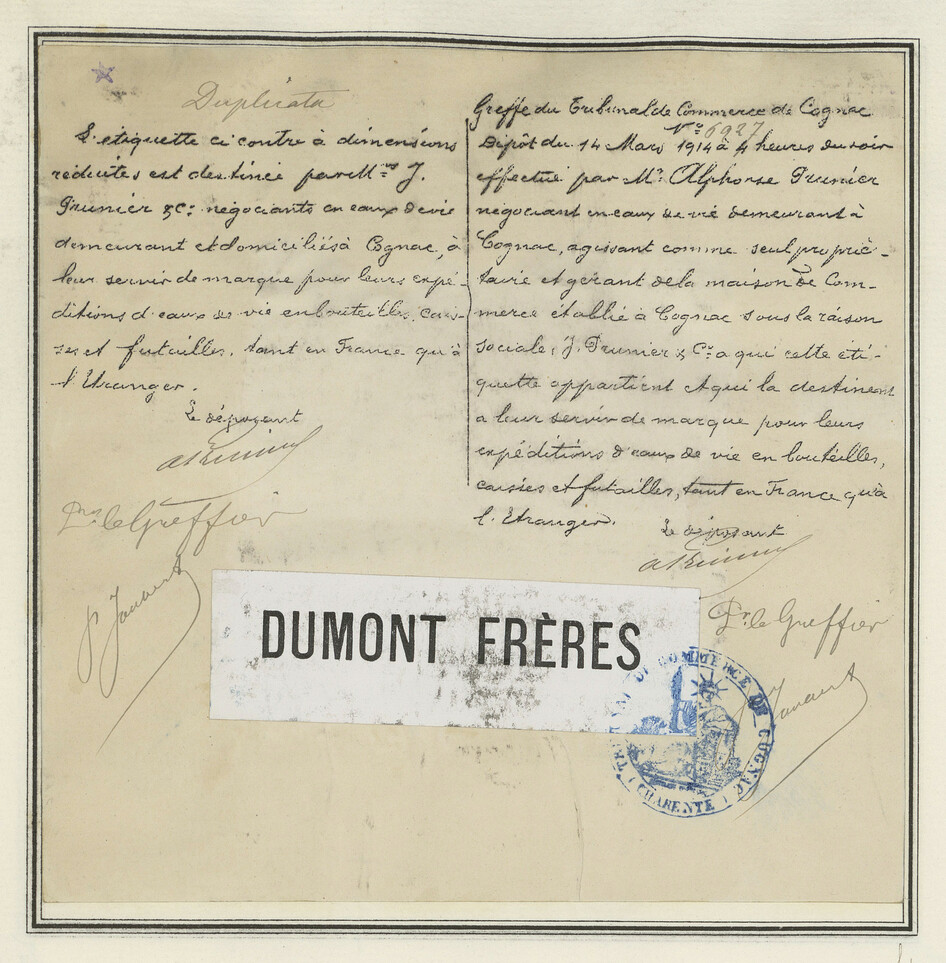 Duplicata
L'étiquette ci contre à dimensions
réduites est destinée par Mrs J.
Prunier & Cie négociants en eaux de vie
demeurant et domiciliés à Cognac, à
leur servir de marque pour leurs expé-
ditions d'eaux de vie en bouteilles, cais-
ses et futailles, tant en France qu'à
l'Etranger.
Le déposant
APrunier
Pr le Greffier
Greffe du Tribunal de Commerce de Cognac
No 6927
Dépôt du 14 Mars 1914 à 4 heures du soir
effectué par Mr Alphonse Prunier
négociant en eaux de vie demeurant à
Cognac, agissant comme seul proprié-
taire et gérant de la maison de Com-
merce établie à Cognac sous la raison
sociale, J. Prunier & Cie a qui cette éti-
quette appartient et qui la destinent
a leur servir de marque pour leurs
expéditions d'eaux de vie en bouteilles,
caisses et futailles, tant en France qu'à
l'Etranger.
Le déposant
APrunier
Pr le Greffier
DUMONT FRÈRES
TRIBUNAL DE COMMERCE DE COGNAC
(CHARENTE)